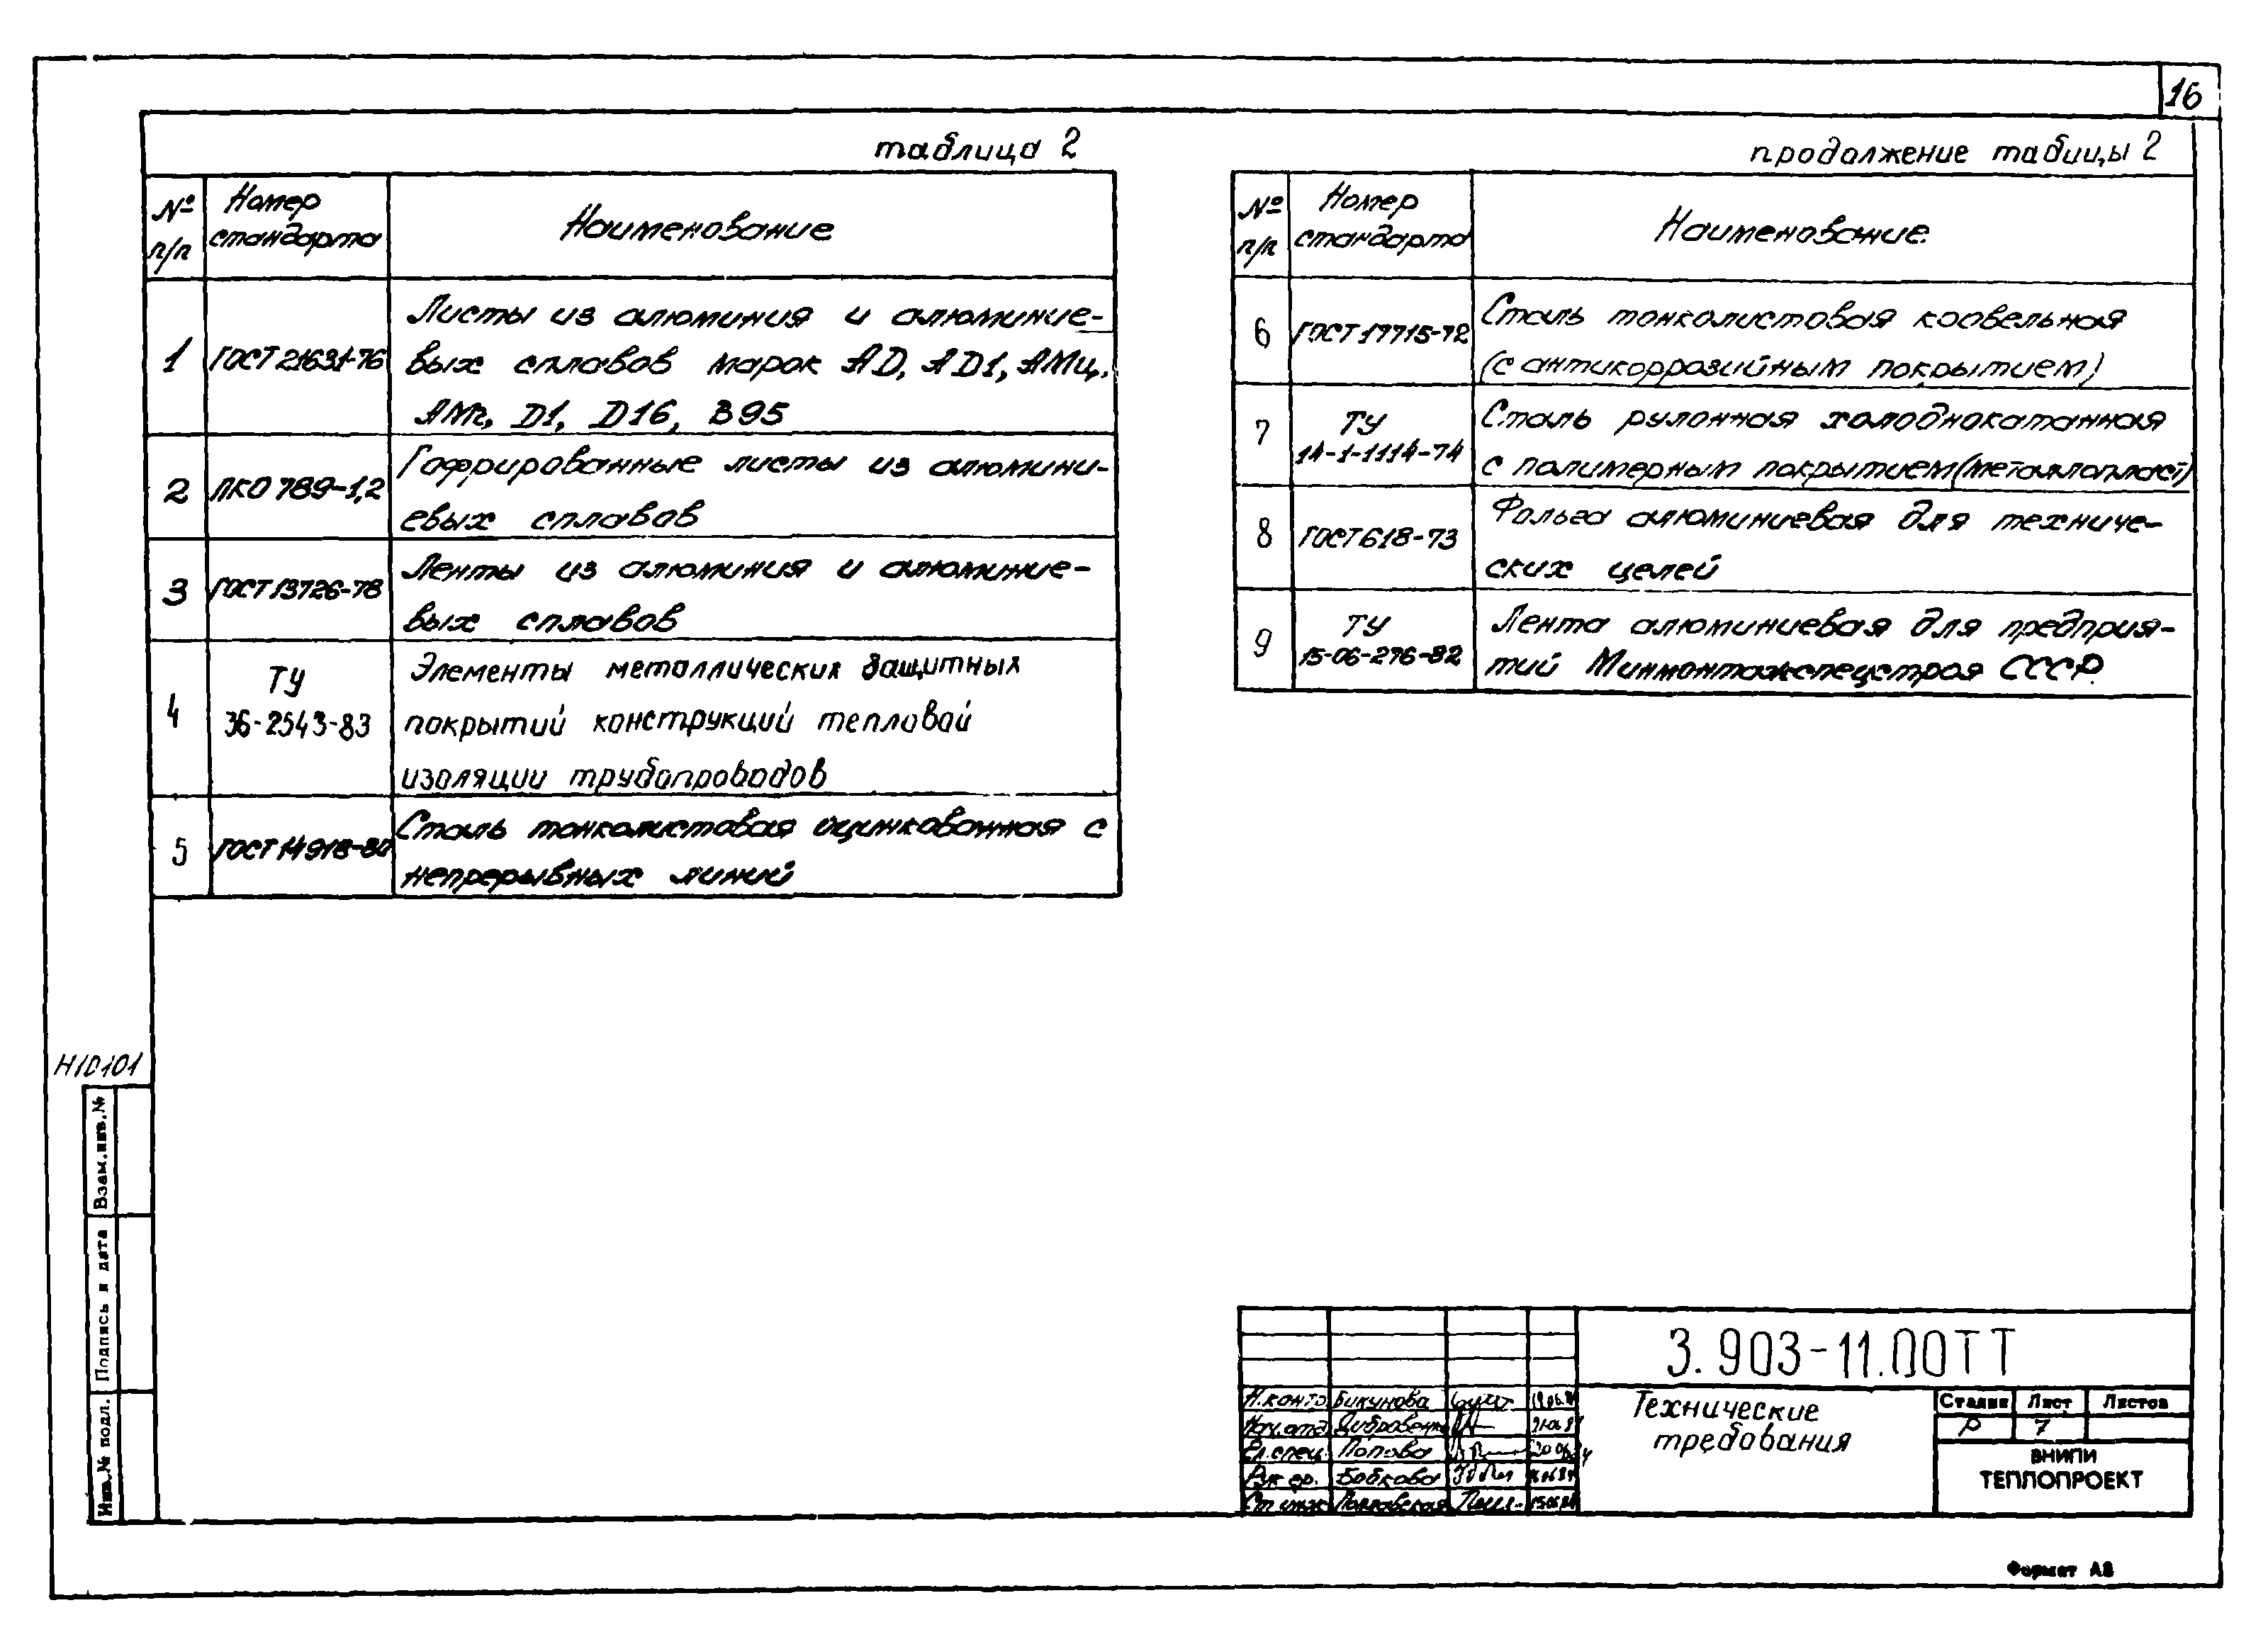 16
таблица 2
№ п/п
Номер стандарта
Наименование
1
ГОСТ 21631-76
Листы из алюминия и алюминие-
вых сплавов марок АD, АD1, АМц,
АМг, D1, D16, В95
2
ПКО 789-1,2
Гофрированные листы из алюмини-
евых сплавов
3
ГОСТ 13726-78
Ленты из алюминия и алюминие-
вых сплавов
4
ТУ
36-2543-83
Элементы металлических защитных
покрытий конструкций тепловой
изоляции трубопроводов
5
ГОСТ 14918-80
Сталь тонколистовая оцинкованная с
непрерывных линий
продолжение табицы 2
№ п/п
Номер стандарта
Наименование
6
ГОСТ 17715-72
Сталь тонколистовая кровельная
(с антикоррозийным покрытием)
7
ТУ
14-1-1114-74
Сталь рулонная холоднокатанная
с полимерным покрытием (металлопласт)
8
ГОСТ 618-73
Фольга алюминиевая для техниче-
ских целей
9
ТУ
15-06-276-82
Лента алюминиевая для предприя-
тий Минмонтажспецстроя СССР.
Н10101
Взам.инв.№
Подпись и дата
Инв.№ подл.
3.903-11.00ТТ
Н.контр. Бикунова
Нач.отд.
Гл.спец. Попова
Рук.гр. Бобкова
Ст.инж.
Технические
требования
Стадия Лист Листов
Р 7
ВНИПИ
ТЕПЛОПРОЕКТ
Формат А3